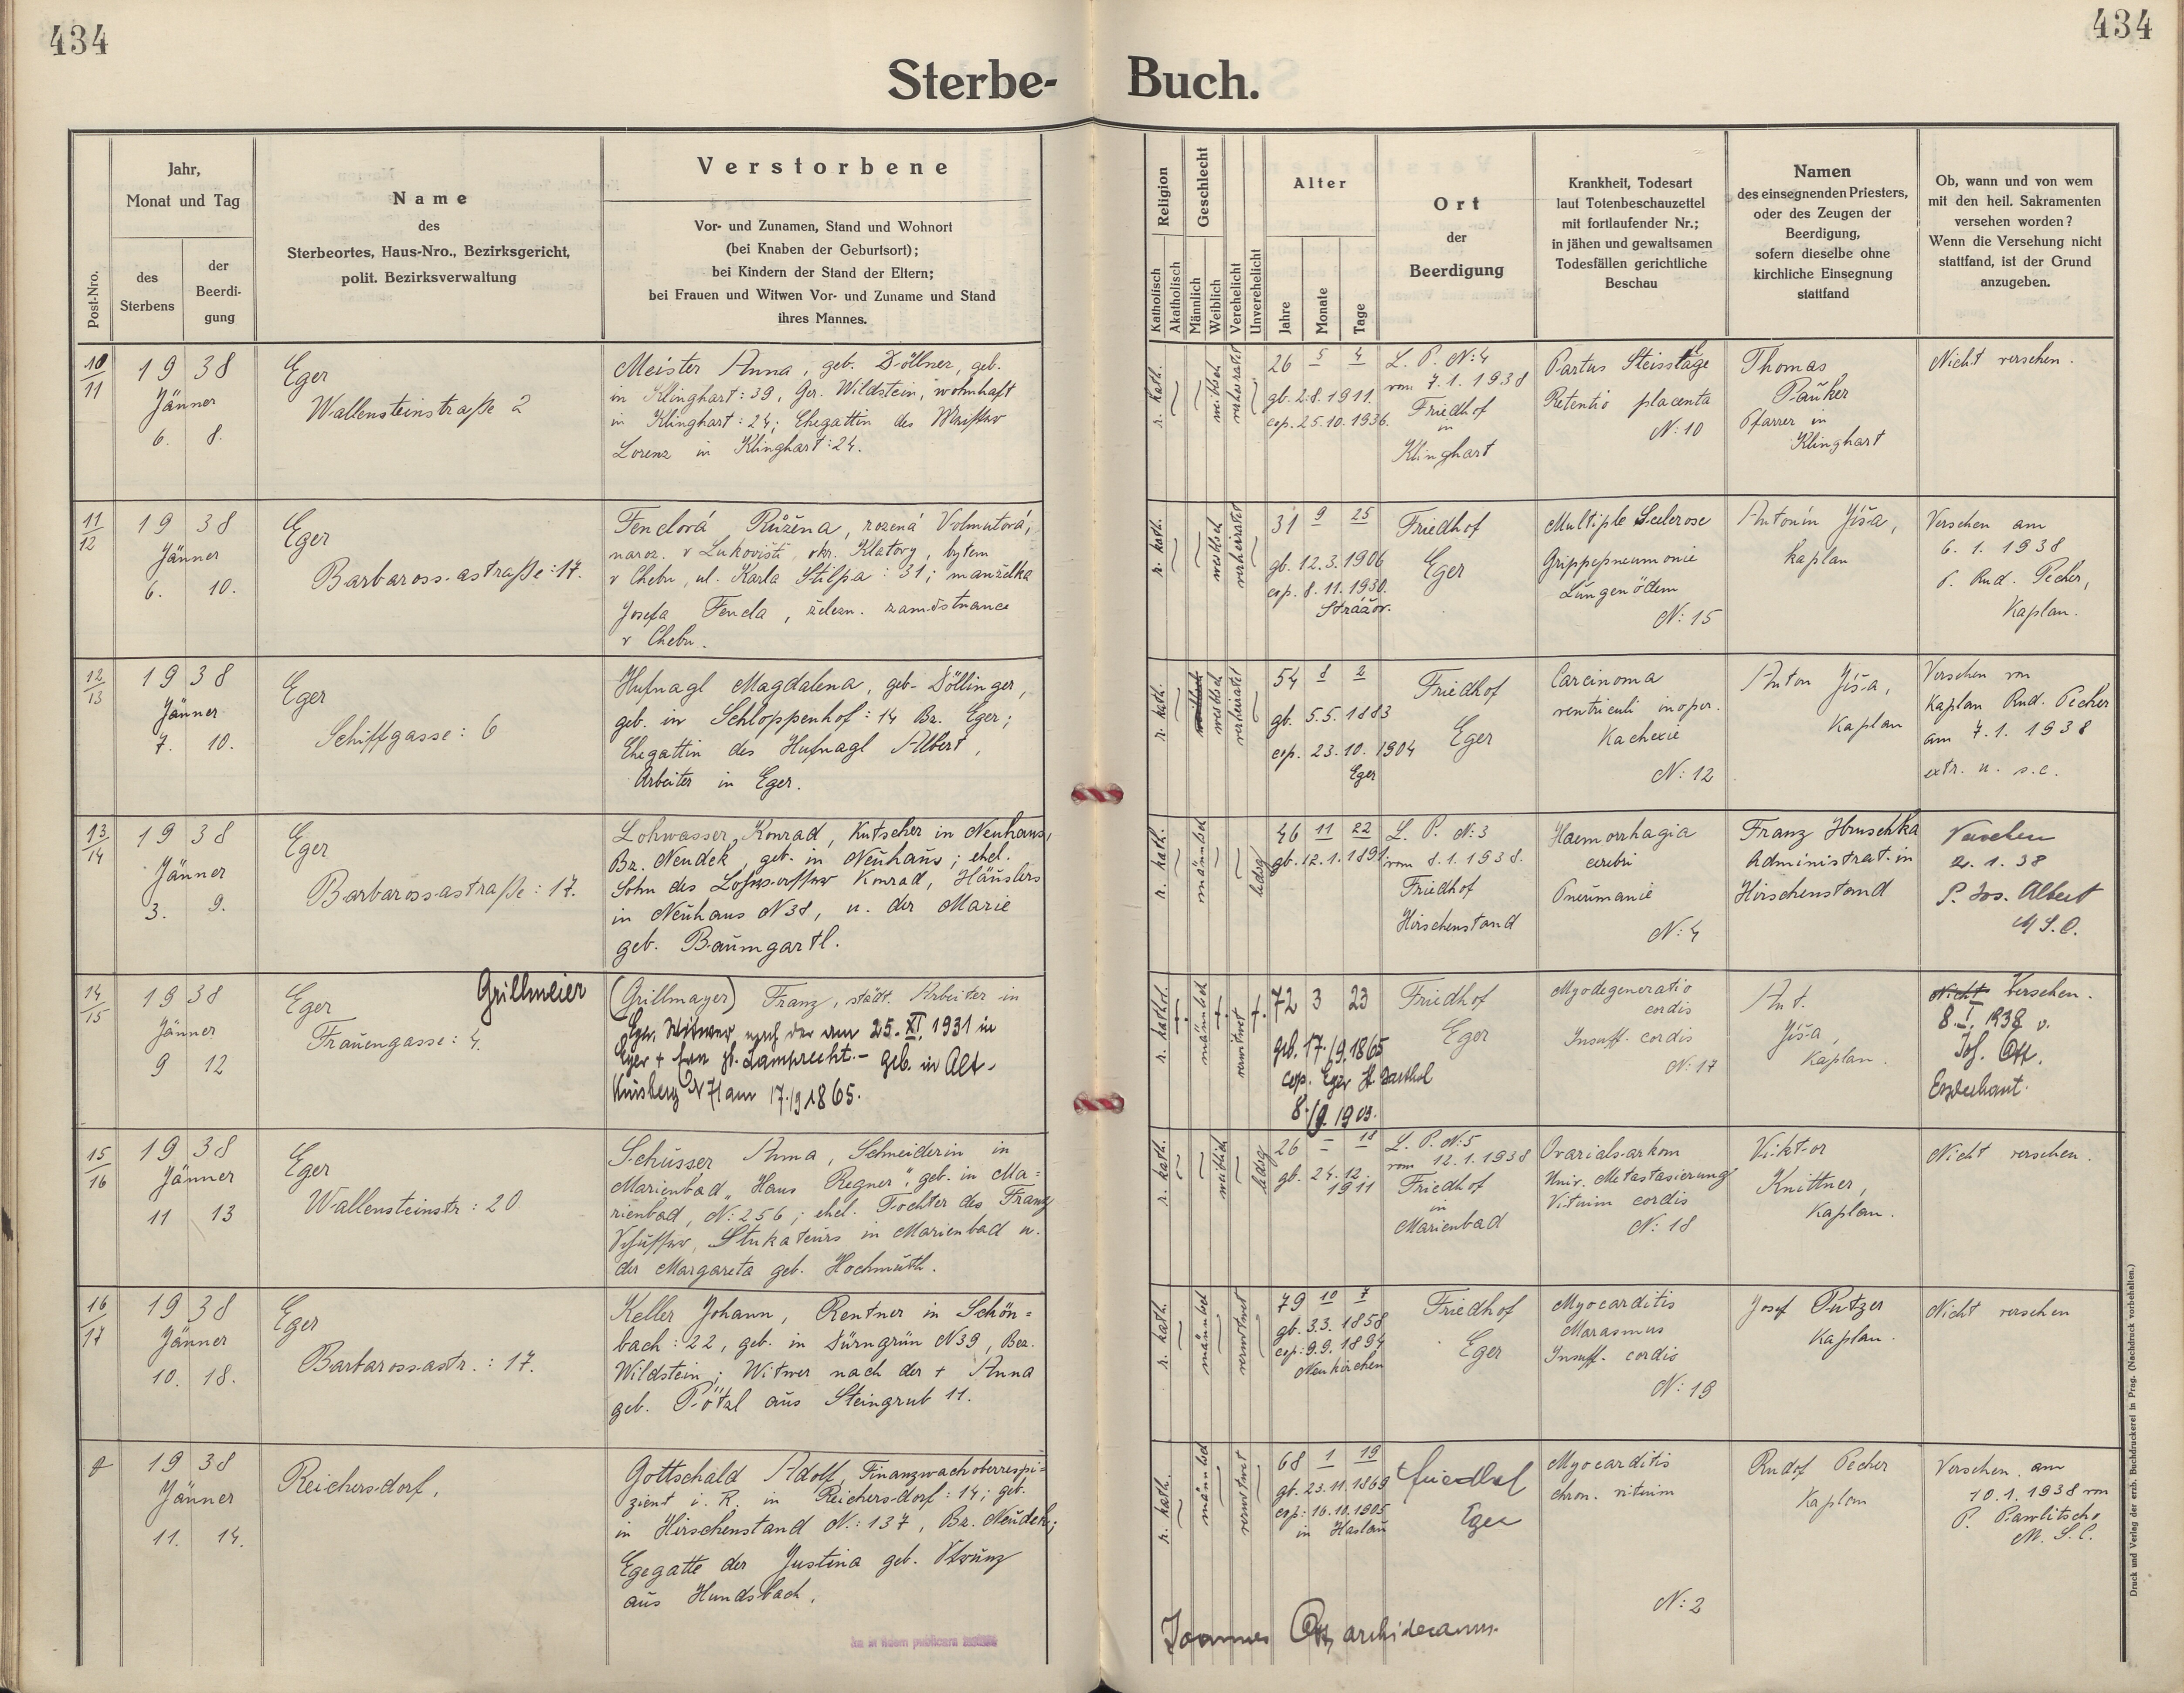 434
434
Sterbe-Buch.
Post-Nro.
Jahr,
Monat und Tag
des
Sterbens
der
Beerdi-
gung
Name
des
Sterbeortes, Haus-Nro., Bezirksgericht,
polit. Bezirksverwaltung
Verstorbene
Vor- und Zunamen, Stand und Wohnort
(bei Knaben der Geburtsort);
bei Kindern der Stand der Eltern;
bei Frauen und Witwen Vor- und Zuname und Stand
ihres Mannes.
Religion
Katholisch
Akatholisch
Geschlecht
Männlich
Weiblich
Verehelicht
Unverehelicht
Alter
Jahre
Monate
Tage
Ort
der
Beerdigung
Krankheit, Todesart
laut Totenbeschauzettel
mit fortlaufender Nr.;
in jähen und gewaltsamen
Todesfällen gerichtliche
Beschau
Namen
des einsegnenden Priesters,
oder des Zeugen der
Beerdigung,
sofern dieselbe ohne
kirchliche Einsegnung
stattfand
Ob, wann und von wem
mit den heil. Sakramenten
versehen worden?
Wenn die Versehung nicht
stattfand, ist der Grund
anzugeben.
10/11
1938
Jänner
6. 8.
Eger
Wallensteinstraße 2
Meister Anna, geb. Döllner, geb.
in Klinghart: 39, Ger. Wildstein, wohnhaft
in Klinghart: 24; Ehegattin des Meister
Lorenz in Klinghart: 24.
r. kath.
weiblich
verheiratet
26 5 4
gb. 2.8.1911.
cop. 25.10.1936.
L. P. N: 4
vom 7.1.1938
Friedhof
in
Klinghart
Partus Steisslage
Retentio placenta
N: 10
Thomas
Pauker
Pfarrer in
Klinghart
Nicht versehen.
11/12
1938
Jänner
6. 10.
Eger
Barbarossastraße: 17.
Fenclová Růžena, rozená Volmutová,
naroz. v Lukovišti, okr. Klatovy, bytem
v Chebu, ul. Karla Stilpa: 31; manželka
Josefa Fencla, železn. zaměstnance
v Chebu.
r. kath.
weiblich
verheiratet
31 9 25
gb. 12.3.1906
cop. 8.11.1930.
Strážov.
Friedhof
Eger
Multiple Sclerose
Grippepneumonie
Lungenödem
N: 15
Antonín Jíša,
Kaplan
Versehen am
6. 1. 1938
P. Rud. Pecher,
Kaplan.
12/13
1938
Jänner
7. 10.
Eger
Schiffgasse: 6
Hufnagl Magdalena, geb. Döllinger,
geb. in Schloppenhof: 14 Bz. Eger;
Ehegattin des Hufnagl Albert,
Arbeiter in Eger.
r. kath.
weiblich
verheiratet
54 8 2
gb. 5.5.1883
cop. 23.10.1904
Eger
Friedhof
Eger
Carcinoma
ventriculi inoper.
Kachexie
N: 12
Anton Jíša,
Kaplan
Versehen von
Kaplan Rud. Pecher
am 7.1.1938
extr. u. s.c.
13/14
1938
Jänner
3. 9.
Eger
Barbarossastraße: 17.
Lohwasser Konrad, Kutscher in Neuhaus,
Bz. Neudek, geb. in Neuhaus; ehel.
Sohn des Lohwasser Konrad, Häuslers
in Neuhaus N 38, u. der Marie
geb. Baumgartl.
r. kath.
männlich
ledig
46 11 22
gb. 12.1.1891
L. P. N: 3
vom 8.1.1938.
Friedhof
Hirschenstand
Haemorrhagia
cerebri
Pneumonie
N: 4
Franz Hruschka
Administrat. in
Hirschenstand
Versehen
2. 1. 38
P. Jos. Albert
M S. C.
14/15
1938
Jänner
9 12
Eger
Frauengasse: 4.
Grillmeier
(Grillmayer) Franz, städt. Arbeiter in
Eger. Witwer nach der am 25. XI. 1931 in
Eger + geb. Lamprecht. - geb. in Alt-
Kinsberg N 71 am 17./9 1865.
r. kathol.
männlich
verwitwet
72 3 23
geb. 17./9.1865
cop. Eger St. Barthol
8./9. 1903.
Friedhof
Eger
Myodegeneratio
cordis
Insuff. cordis
N: 17
Ant.
Jíša,
Kaplan.
Nicht Versehen.
8. I. 1938 v.
Joh. Ott.
Erzdechant.
15/16
1938
Jänner
11 13
Eger
Wallensteinstr: 20
Schusser Anna, Schneiderin in
Marienbad „Haus Regner“; geb. in Ma=
rienbad, N: 256; ehel. Tochter des Franz
Schusser, Stukateurs in Marienbad u.
der Margareta geb. Hochmuth.
r. kath.
weiblich
ledig
26 – 18
gb. 24.12.
1911
L. P. N: 5
vom 12.1.1938
Friedhof
in
Marienbad
Ovarialsarkom
Univ. Metastasierung
Vitium cordis
N: 18
Viktor
Knittner,
Kaplan.
Nicht versehen.
16/17
1938
Jänner
10. 18.
Eger
Barbarossastr.: 17.
Keller Johann, Rentner in Schön=
bach: 22, geb. in Dürngrün N 39, Bez.
Wildstein; Witwer nach der + Anna
geb. Pötzl aus Steingrub 11.
r. kath.
männlich
verwitwet
79 10 7
gb. 3.3.1858
cop: 9.9.1894
Neukirchen
Friedhof
Eger
Myocarditis
Marasmus
Insuff. cordis
N: 19
Josef Putzer
Kaplan.
Nicht versehen
1938
Jänner
11. 14.
Reichersdorf.
Gottschald Adolf, Finanzwachoberrespi=
zient i. R. in Reichersdorf: 14; geb.
in Hirschenstand N: 137, Bz. Neudek;
Egegatte der Justina geb. Strunz
aus Hundsbach.
r. kath.
männlich
verwitwet
68 1 19
gb. 23.11.1869
cop: 16.10.1905
in Haslau
Friedhof
Eger
Myocarditis
chron. vitium
N: 2
Rudof Pecher
Kaplan
Versehen am
10.1.1938 von
P. Pawlitschs
M. S. C.
Joannes Ott, archidecanus.
Druck und Verlag der erzb. Buchdruckerei in Prag. (Nachdruck vorbehalten.)